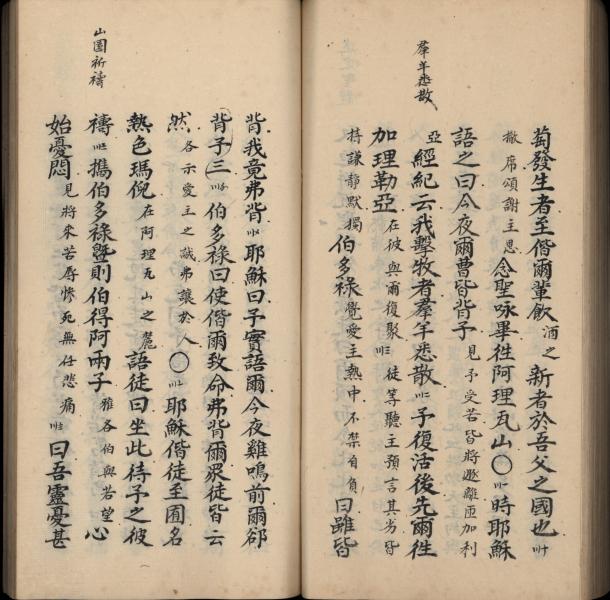 羣羊悉散
萄發生者至偕爾輩飲酒之新者於吾父之國也
撤席頌謝主恩念聖咏畢徃阿理瓦山〇時耶穌
語之曰今夜爾曹皆背予見予受苦皆將遯離匝加利
亞經紀云我擊牧者羣羊悉散予復活後先爾徃
加理勒亞在彼與爾復聚徒等聽主預言其劣皆
持謙靜默獨伯多祿覺愛主熱中不禁自負曰雖皆
背我竟弗背耶穌曰予實語爾今夜雞鳴前爾郤
背予三伯多祿曰使偕爾致命弗背爾眾徒皆云
然各示愛主之誠弗讓於人〇耶穌偕徒至囿名
熱色瑪伲在阿理瓦山之麓語徒曰坐此待予之彼
禱攜伯多祿暨則伯得阿兩子雅各伯與若望心
始憂悶見將來苦辱慘死無任悲痛曰吾靈憂甚
山園祈禱